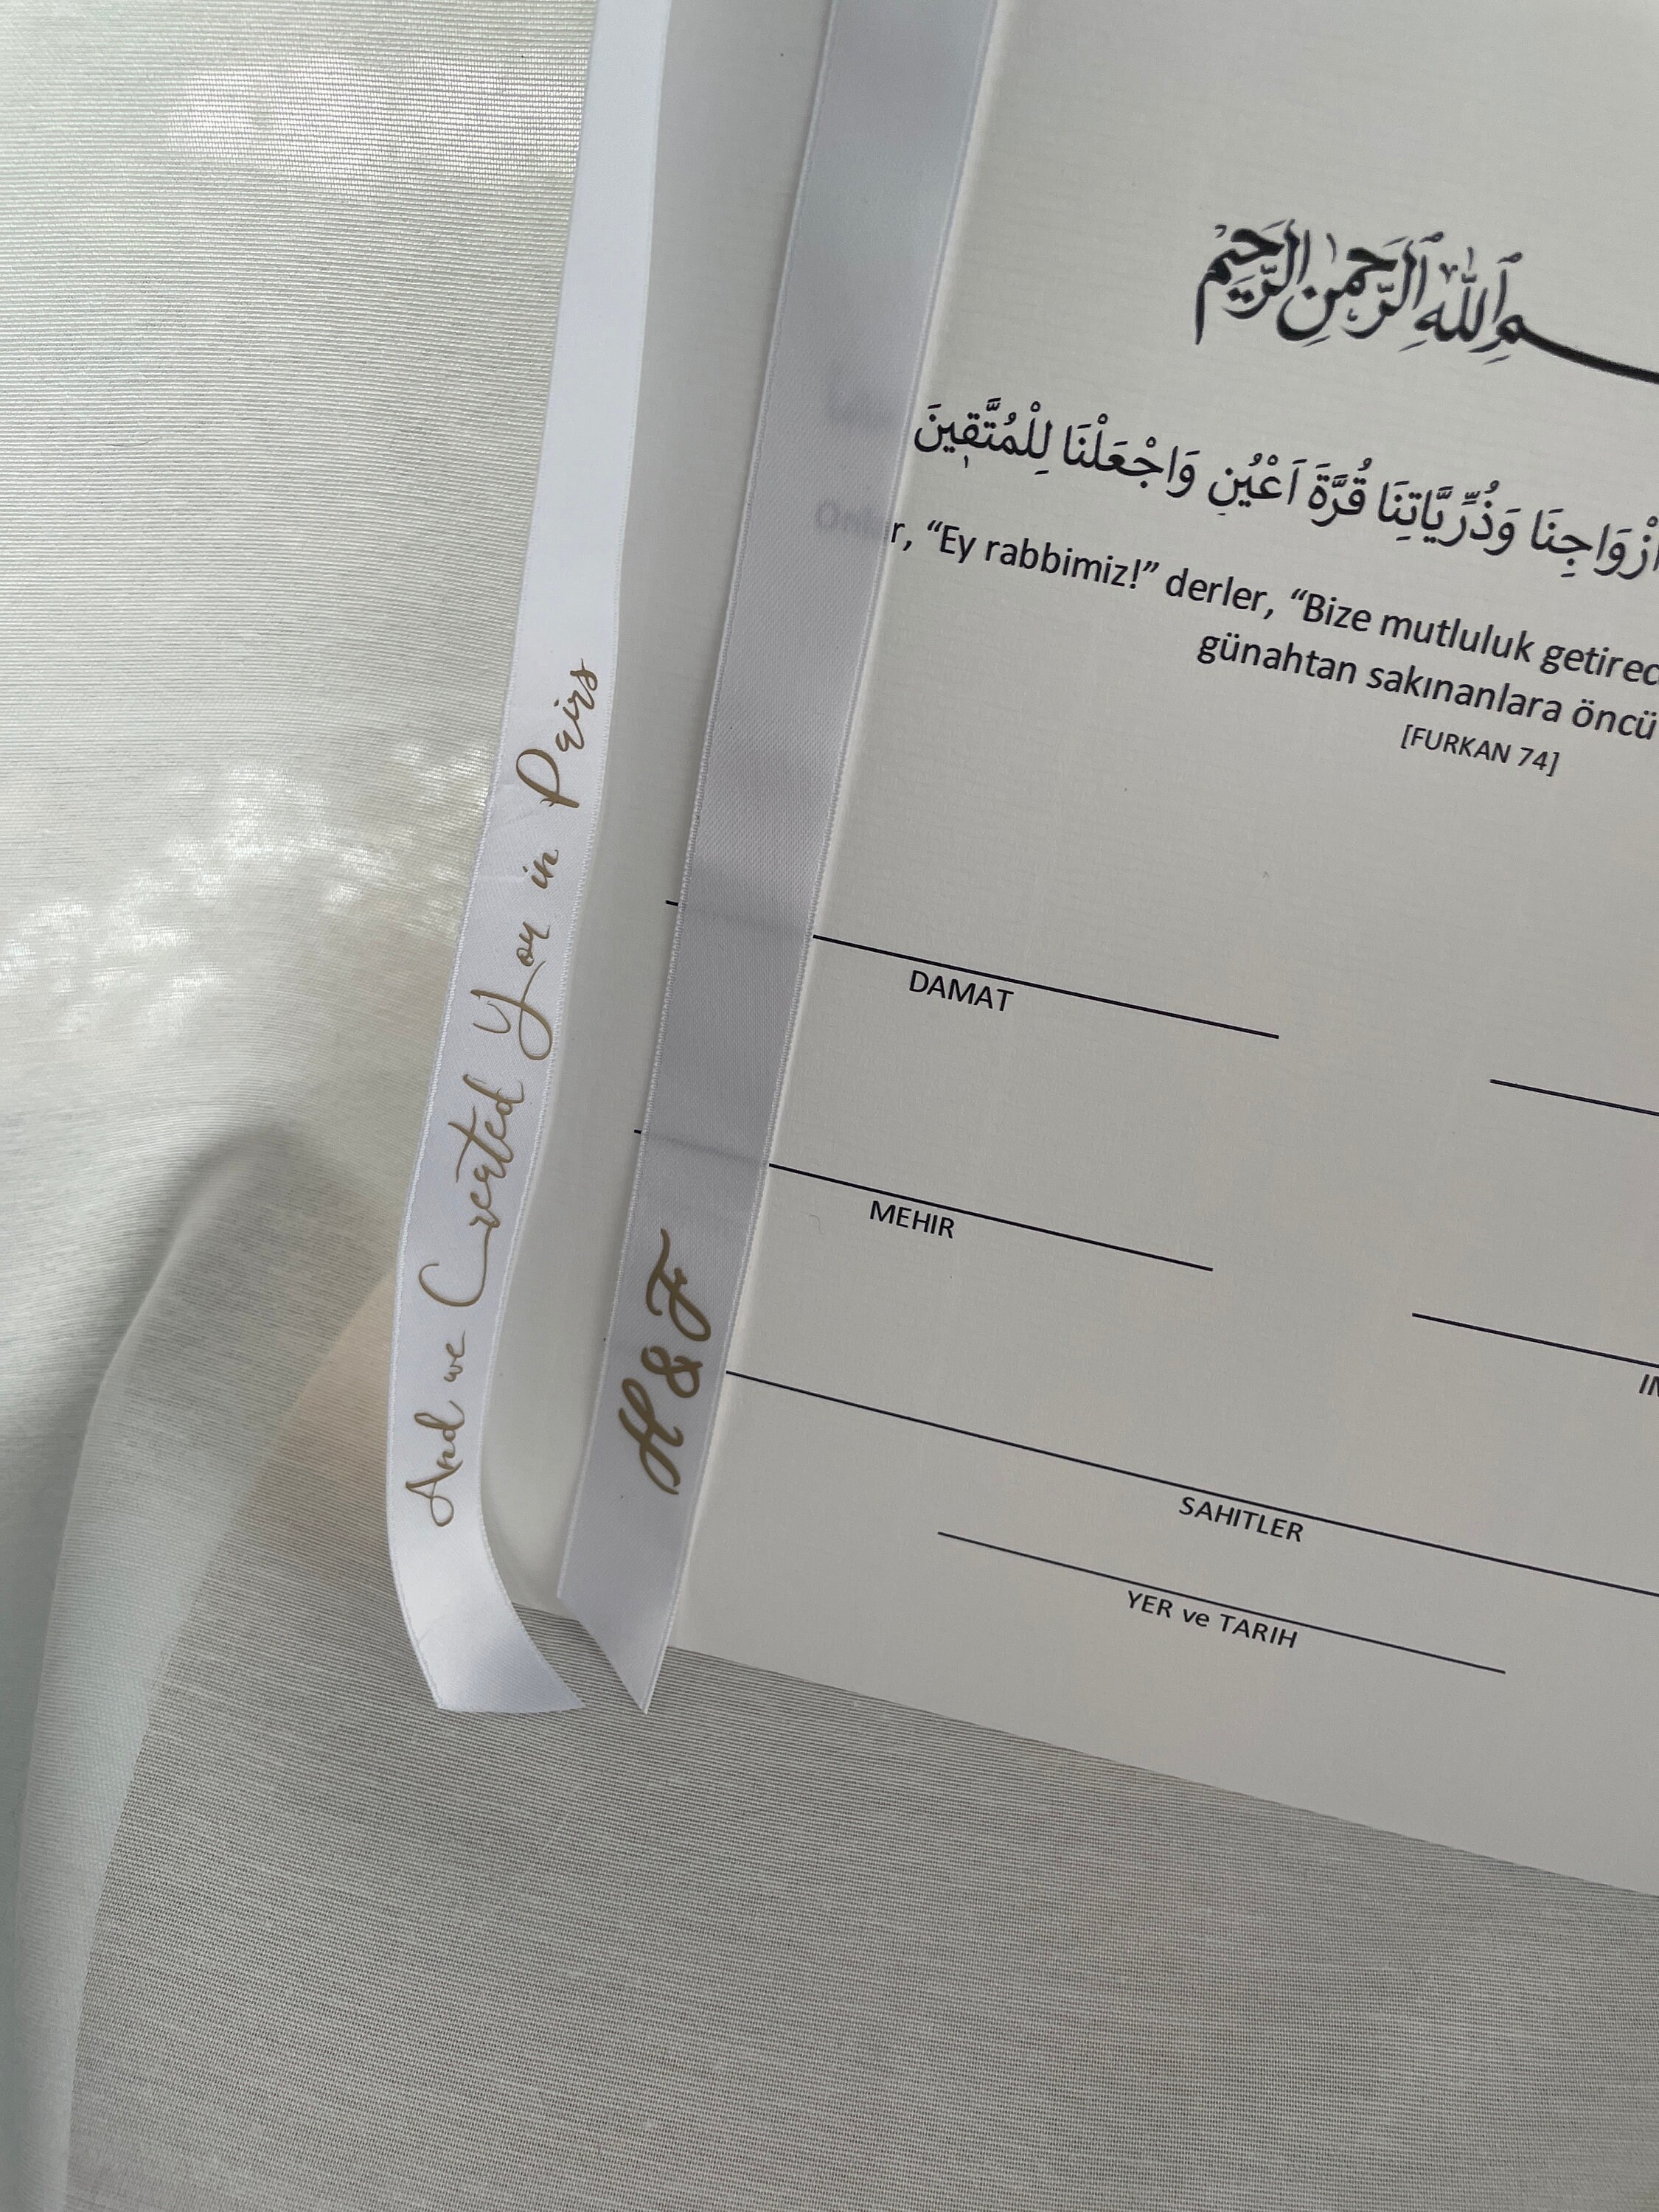 ٱللَّهِ ٱلرَّحْمٰنِ ٱلرَّحِيمِ
اَزْوَاجِنَا وَذُرِّيَّاتِنَا قُرَّةَ اَعْيُنٍ وَاجْعَلْنَا لِلْمُتَّقٖينَ
Onlar, “Ey rabbimiz!” derler, “Bize mutluluk getirec
günahtan sakınanlara öncü
[FURKAN 74]
DAMAT
MEHIR
SAHITLER
YER ve TARIH
And we Created You in Pairs
H & F